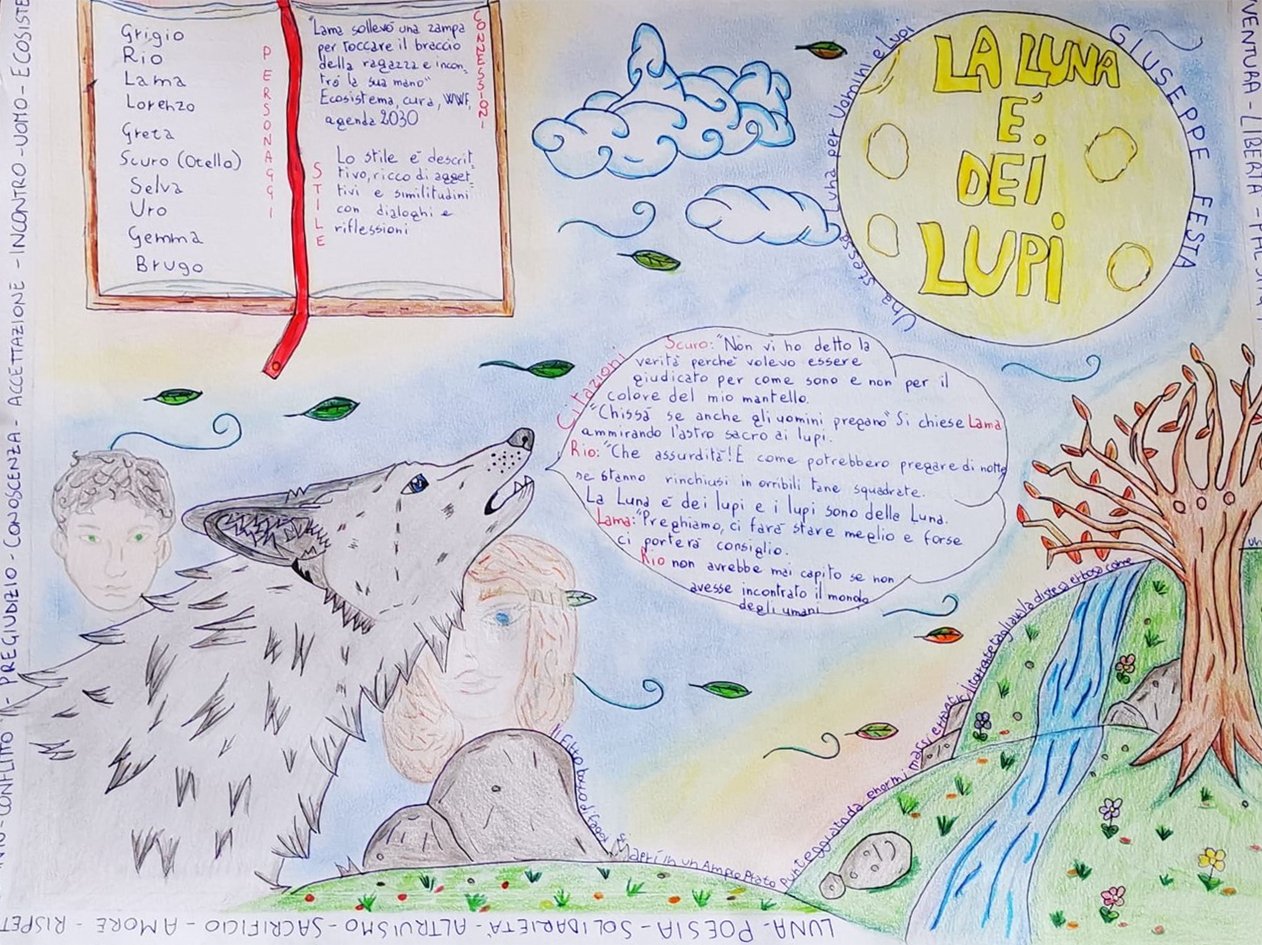 Grigio
Rio
Lama
Lorenzo
Greta
Scuro (Otello)
Selva
Uro
Gemma
Brugo
PERSONAGGI
"Lama sollevò una zampa
per toccare il braccio
della ragazza e incon_
trò la sua mano"
Ecosistema, cura, WWF,
agenda 2030
CONNESSIONI
STILE
Lo stile è descrit_
tivo, ricco di agget_
tivi e similitudini
con dialoghi e
riflessioni
Una stessa Luna per Uomini e Lupi
LA LUNA
È
DEI
LUPI
GIUSEPPE FESTA
Citazioni
Scuro: "Non vi ho detto la
verità perchè volevo essere
giudicato per come sono e non per il
colore del mio mantello.
"Chissà se anche gli uomini pregano" Si chiese Lama
ammirando l'astro sacro ai lupi.
Rio: "Che assurdità! E come potrebbero pregare di notte
se stanno rinchiusi in orribili tane squadrate.
La Luna è dei lupi e i lupi sono della Luna.
Lama: "Preghiamo, ci farà stare meglio e forse
ci porterà consiglio.
Rio non avrebbe mai capito se non
avesse incontrato il mondo
degli umani
Il fitto bosco di faggi si aprì in un Ampio Prato punteggiato da enormi massi erratici
tagliava la distesa erbosa come
un
CONFLITTO - PREGIUDIZIO - CONOSCENZA - ACCETTAZIONE - INCONTRO - UOMO - ECOSISTE
VENTURA - LIBERTÀ
LUNA - POESIA - SOLIDARIETÀ - ALTRUISMO - SACRIFICIO - AMORE - RISPET